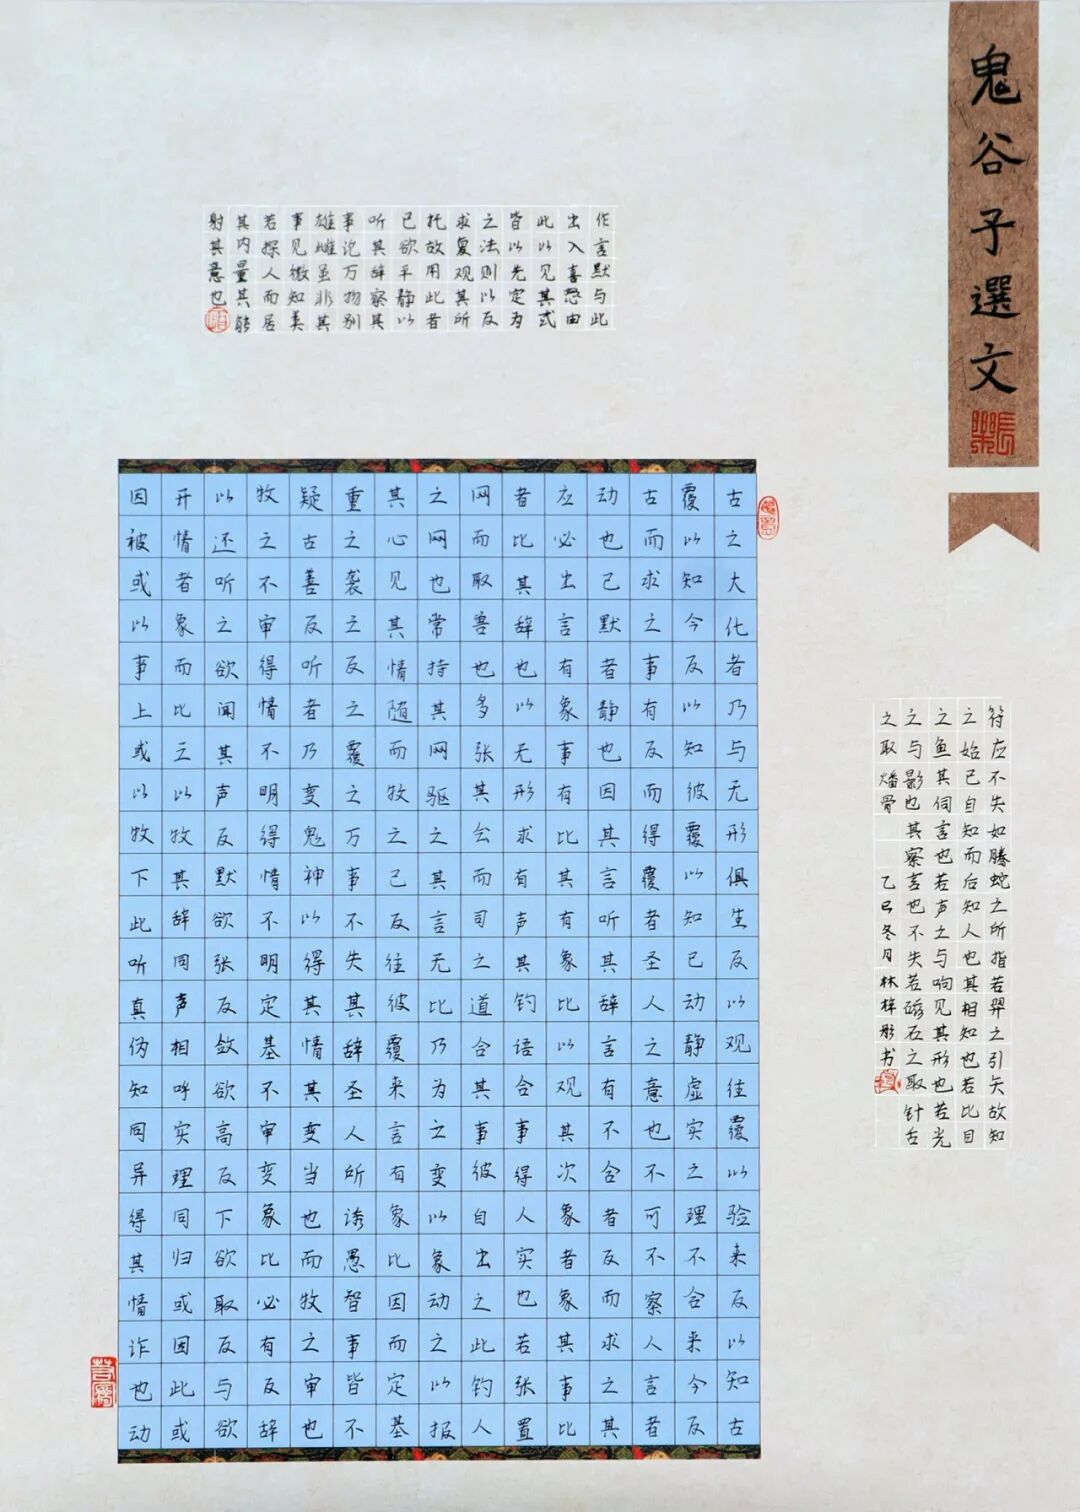 鬼谷子選文
古之大化者乃与无形俱生反以观往覆以验来反以知古
覆以知今反以知彼覆以知己动静虚实之理不合来今反
古而求之事有反而得覆者圣人之意也不可不察人言者
动也己默者静也因其言听其辞言有不合者反而求之其
应必出言有象事有比其有象比以观其次象者象其事比
者比其辞也以无形求有声其钓语合事得人实也若张置
网而取兽也多张其会而司之道合其事彼自出之此钓人
之网也常持其网驱之其言无比乃为之变以象动之以报
其心见其情随而牧之己反往彼覆来言有象比因而定基
重之袭之反之覆之万事不失其辞圣人所诱愚智事皆不
疑古善反听者乃变鬼神以得其情其变当也而牧之审也
牧之不审得情不明得情不明定基不审变象比必有反辞
以还听之欲闻其声反默欲张反敛欲高反下欲取反与欲
开情者象而比之以牧其辞同声相呼实理同归或因此或
因被或以事上或以牧下此听真伪知同异得其情诈也动
作言默与此
出入喜怒由
此以见其式
皆以先定为
之法则以反
求复观其所
托故用此者
己欲平静以
听其辞察其
事论万物别
雄雌虽非其
事见微知美
若探人而居
其内量其能
射其意也
符应不失如螣蛇之所指若羿之引矢故知
之始己自知而后知人也其相知也若比目
之鱼其伺言也若声之与响见其形也若光
之与影也其察言也不失若磁石之取针舌
之取燔骨 乙巳冬月林梓彤书